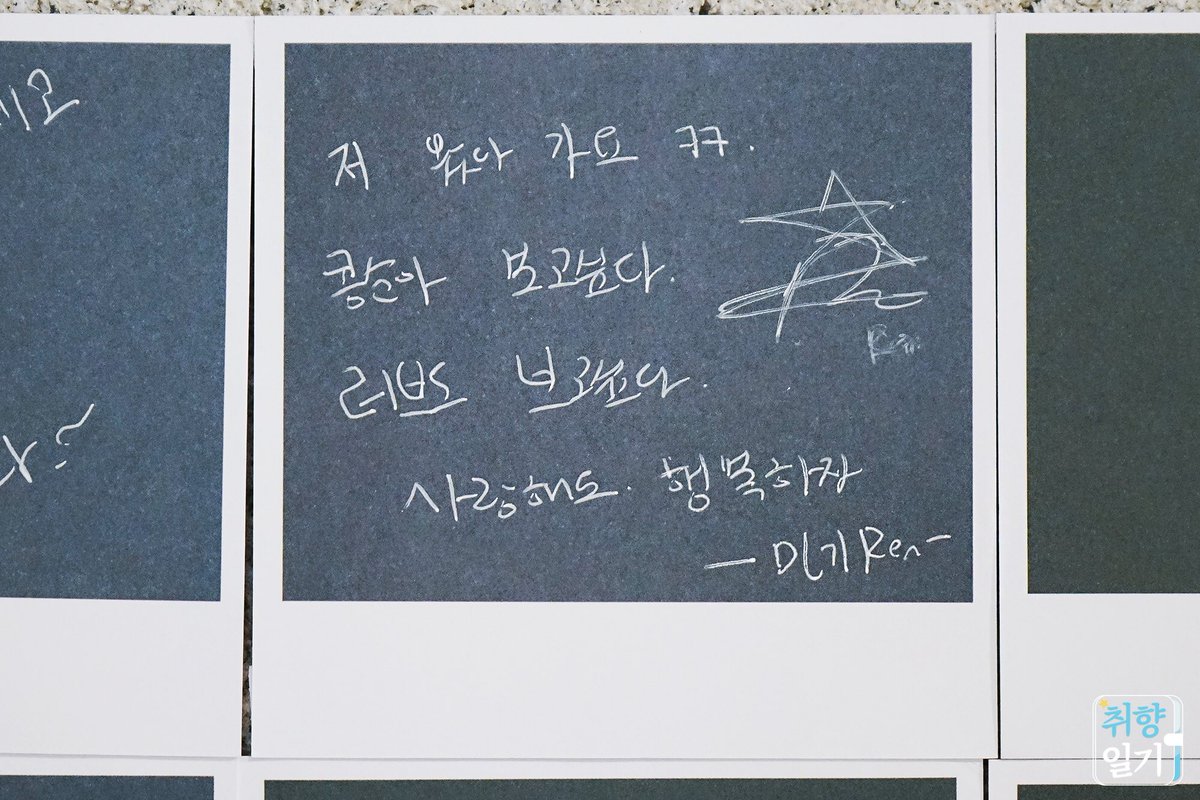 저 왔다 가요 ㅋㅋ.
보고싶다.
러브도 보고싶다.
사랑해도. 행복하장
- 민기 Ren -
Ren
취향
일기